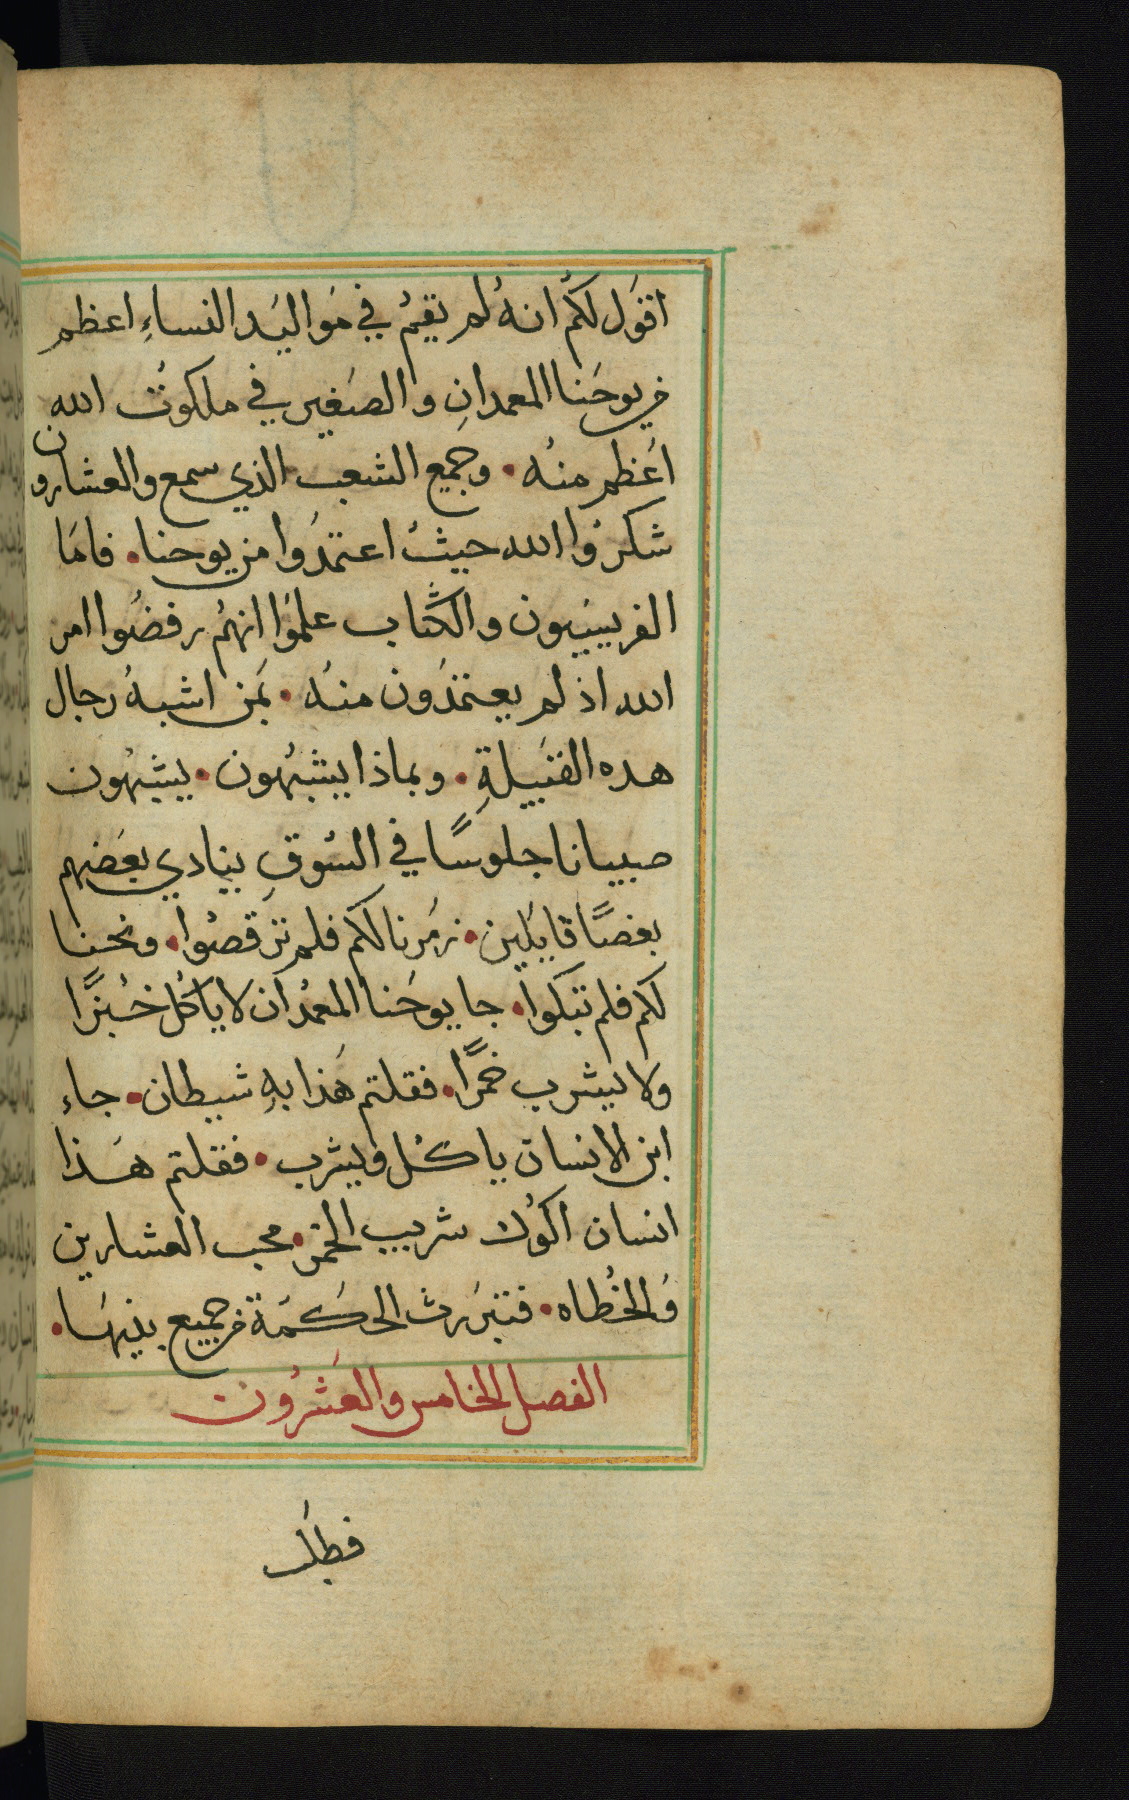 اقول لكم انه لم يقم في مواليد النساء اعظم
من يوحنا المعمدان والصغير في ملكوت الله
اعظم منه • وجميع الشعب الذي سمع والعشارون
شكروا الله حيث اعتمدوا من يوحنا • فاما
الفريسيون والكتاب علموا انهم رفضوا امر
الله اذ لم يعتمدون منه • بمن اشبه رجال
هده القبيلة • وبماذا يشبهون • يشبهون
صبيانا جلوسًا في السوق ينادي بعضهم
بعضًا قايلين • زمرنا لكم فلم ترقصوا • ونحنا
لكم فلم تبكوا • جا يوحنا المعمدان لا ياكل خبزًا
ولا يشرب خمرًا • فقلتم هذا به شيطان • جاء
ابن الانسان ياكل ويشرب • فقلتم هذا
انسان اكول شريب الخمر • محب العشارين
والخطاه • فتبررت الحكمة من جميع بنيها •
الفصل الخامس والعشرون
فطلب